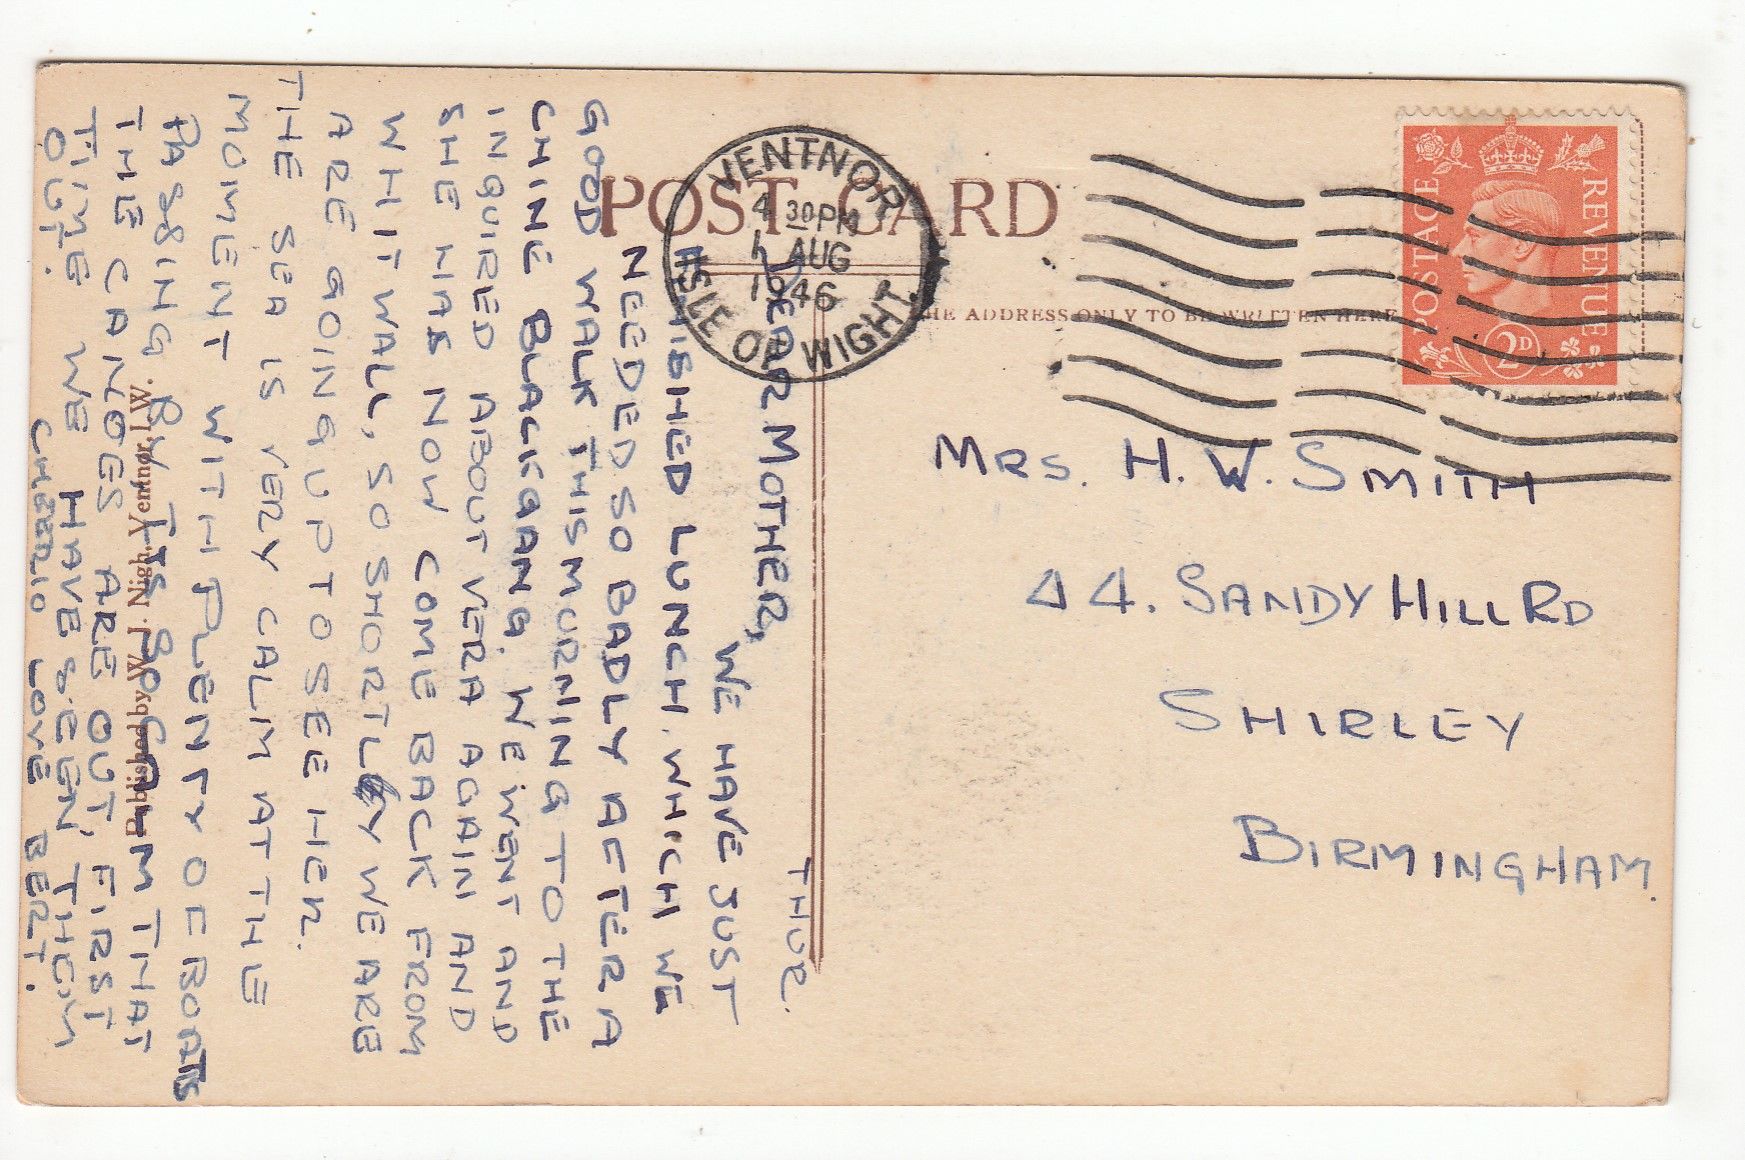 POST CARD
THE ADDRESS ONLY TO BE WRITTEN HERE
VENTNOR
4 30 PM
1 AUG
1946
ISLE OF WIGHT
POSTAGE
REVENUE
2D
MRS. H. W. SMITH
44. SANDY HILL RD
SHIRLEY
BIRMINGHAM.
THUR.
DEAR MOTHER,
WE HAVE JUST
FINISHED LUNCH. WHICH WE
NEEDED SO BADLY AFTER A
GOOD WALK THIS MORNING TO THE
CHINE BLACKGANG. WE WENT AND
INQUIRED ABOUT VERA AGAIN AND
SHE HAS NOW COME BACK FROM
WHITWALL, SO SHORTLY WE ARE
ARE GOING UP TO SEE HER.
THE SEA IS VERY CALM AT THE
MOMENT WITH PLENTY OF BOATS
PASSING BY. ITS SO CALM THAT
THE CANOES ARE OUT, FIRST
TIME WE HAVE SEEN THEM
OUT.
CHEERIO LOVE BERT.
Published by W. J. Nigh, Ventnor, I.W.